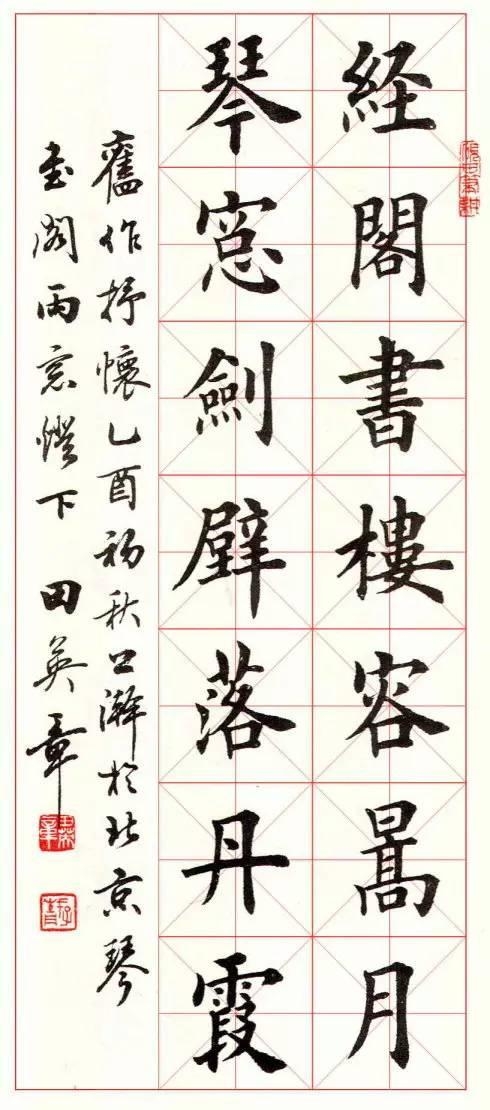 経閣書樓容暠月
琴窓劍壁落丹霞
舊作抒懷乙酉初秋瀚於北京琴
書閣雨窓燈下田英章